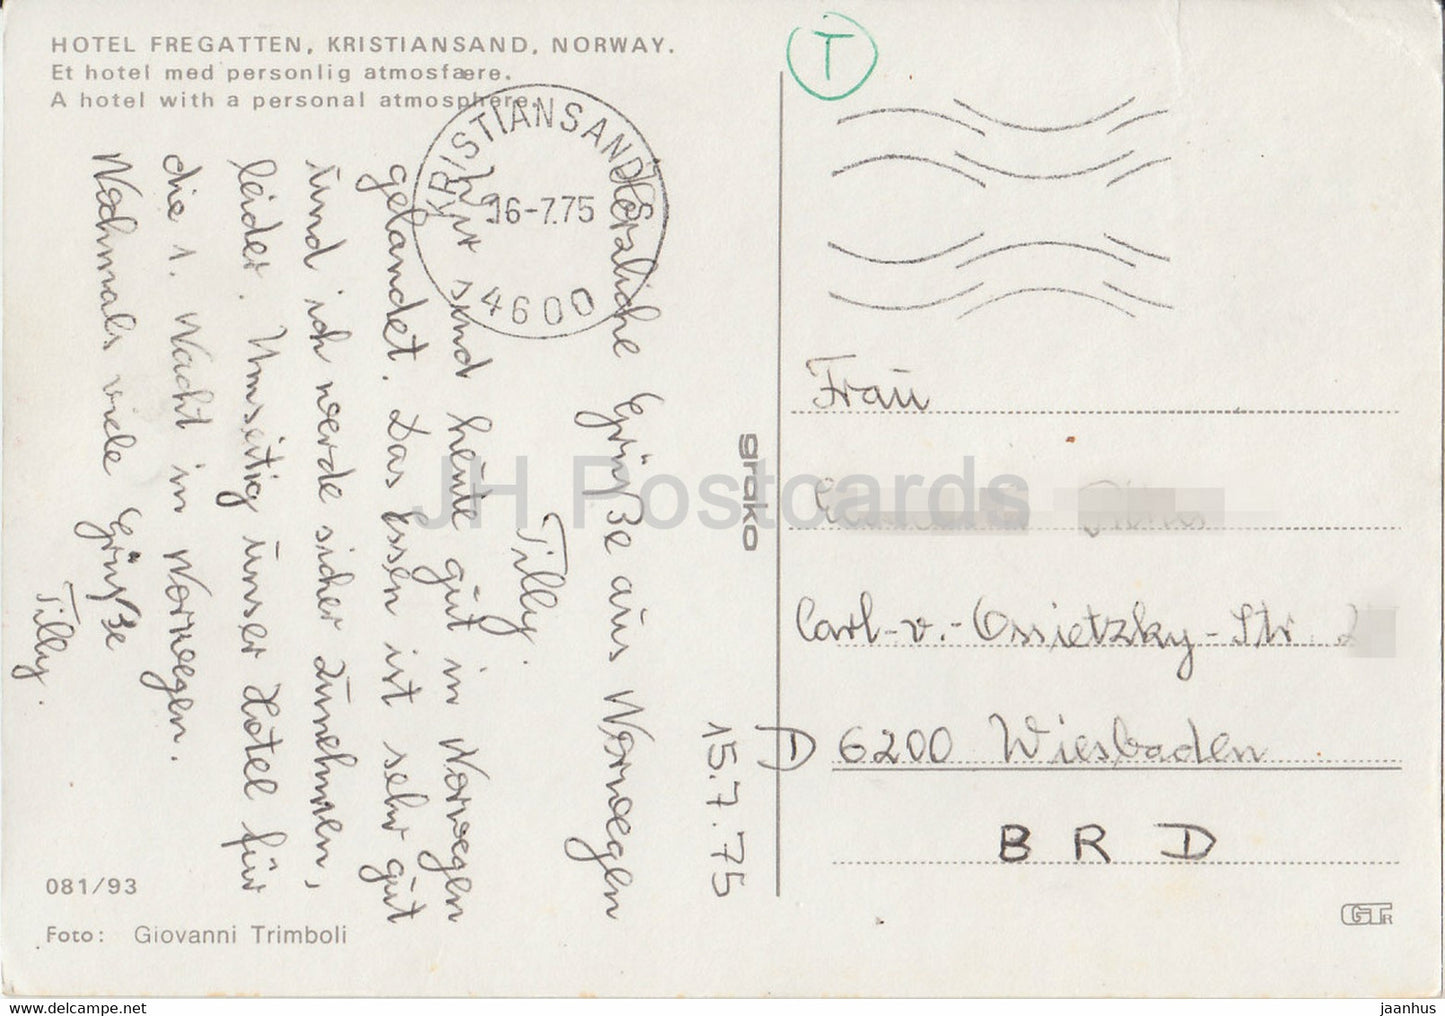 HOTEL FREGATTEN, KRISTIANSAND, NORWAY.
Et hotel med personlig atmosfære.
A hotel with a personal atmosphere.
KRISTIANSAND S
16-7.75
4600
T
15.7.75
Herzliche Grüße aus Norwegen
Tilly.
Wir sind heute gut in Norwegen
gelandet. Das Essen ist sehr gut
und ich werde sicher zunehmen,
leider. Umseitig unser Hotel für
die 1. Nacht in Norwegen.
Nochmals viele Grüße
Tilly.
grako
Frau
Carl-v.-Ossietzky-Str. 2
D 6200 Wiesbaden
BRD
081/93
Foto: Giovanni Trimboli
GTR
JH Postcards
www.delcampe.net
jaanhus